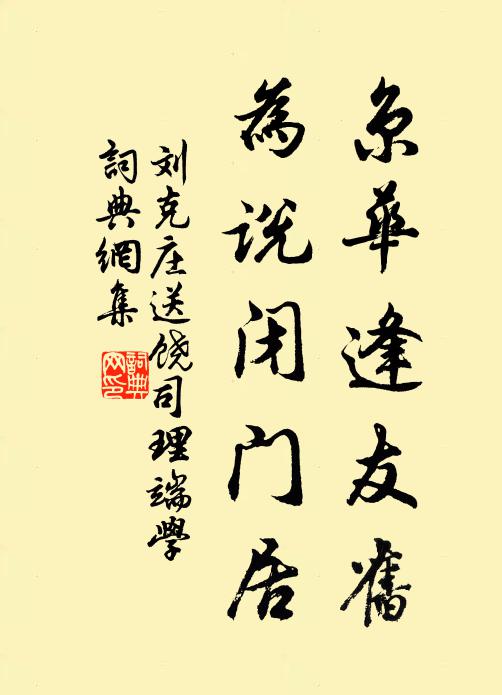 京華逢友舊
為説闭门居
刘克庄送饶司理端學
詞典網集
詞典網印